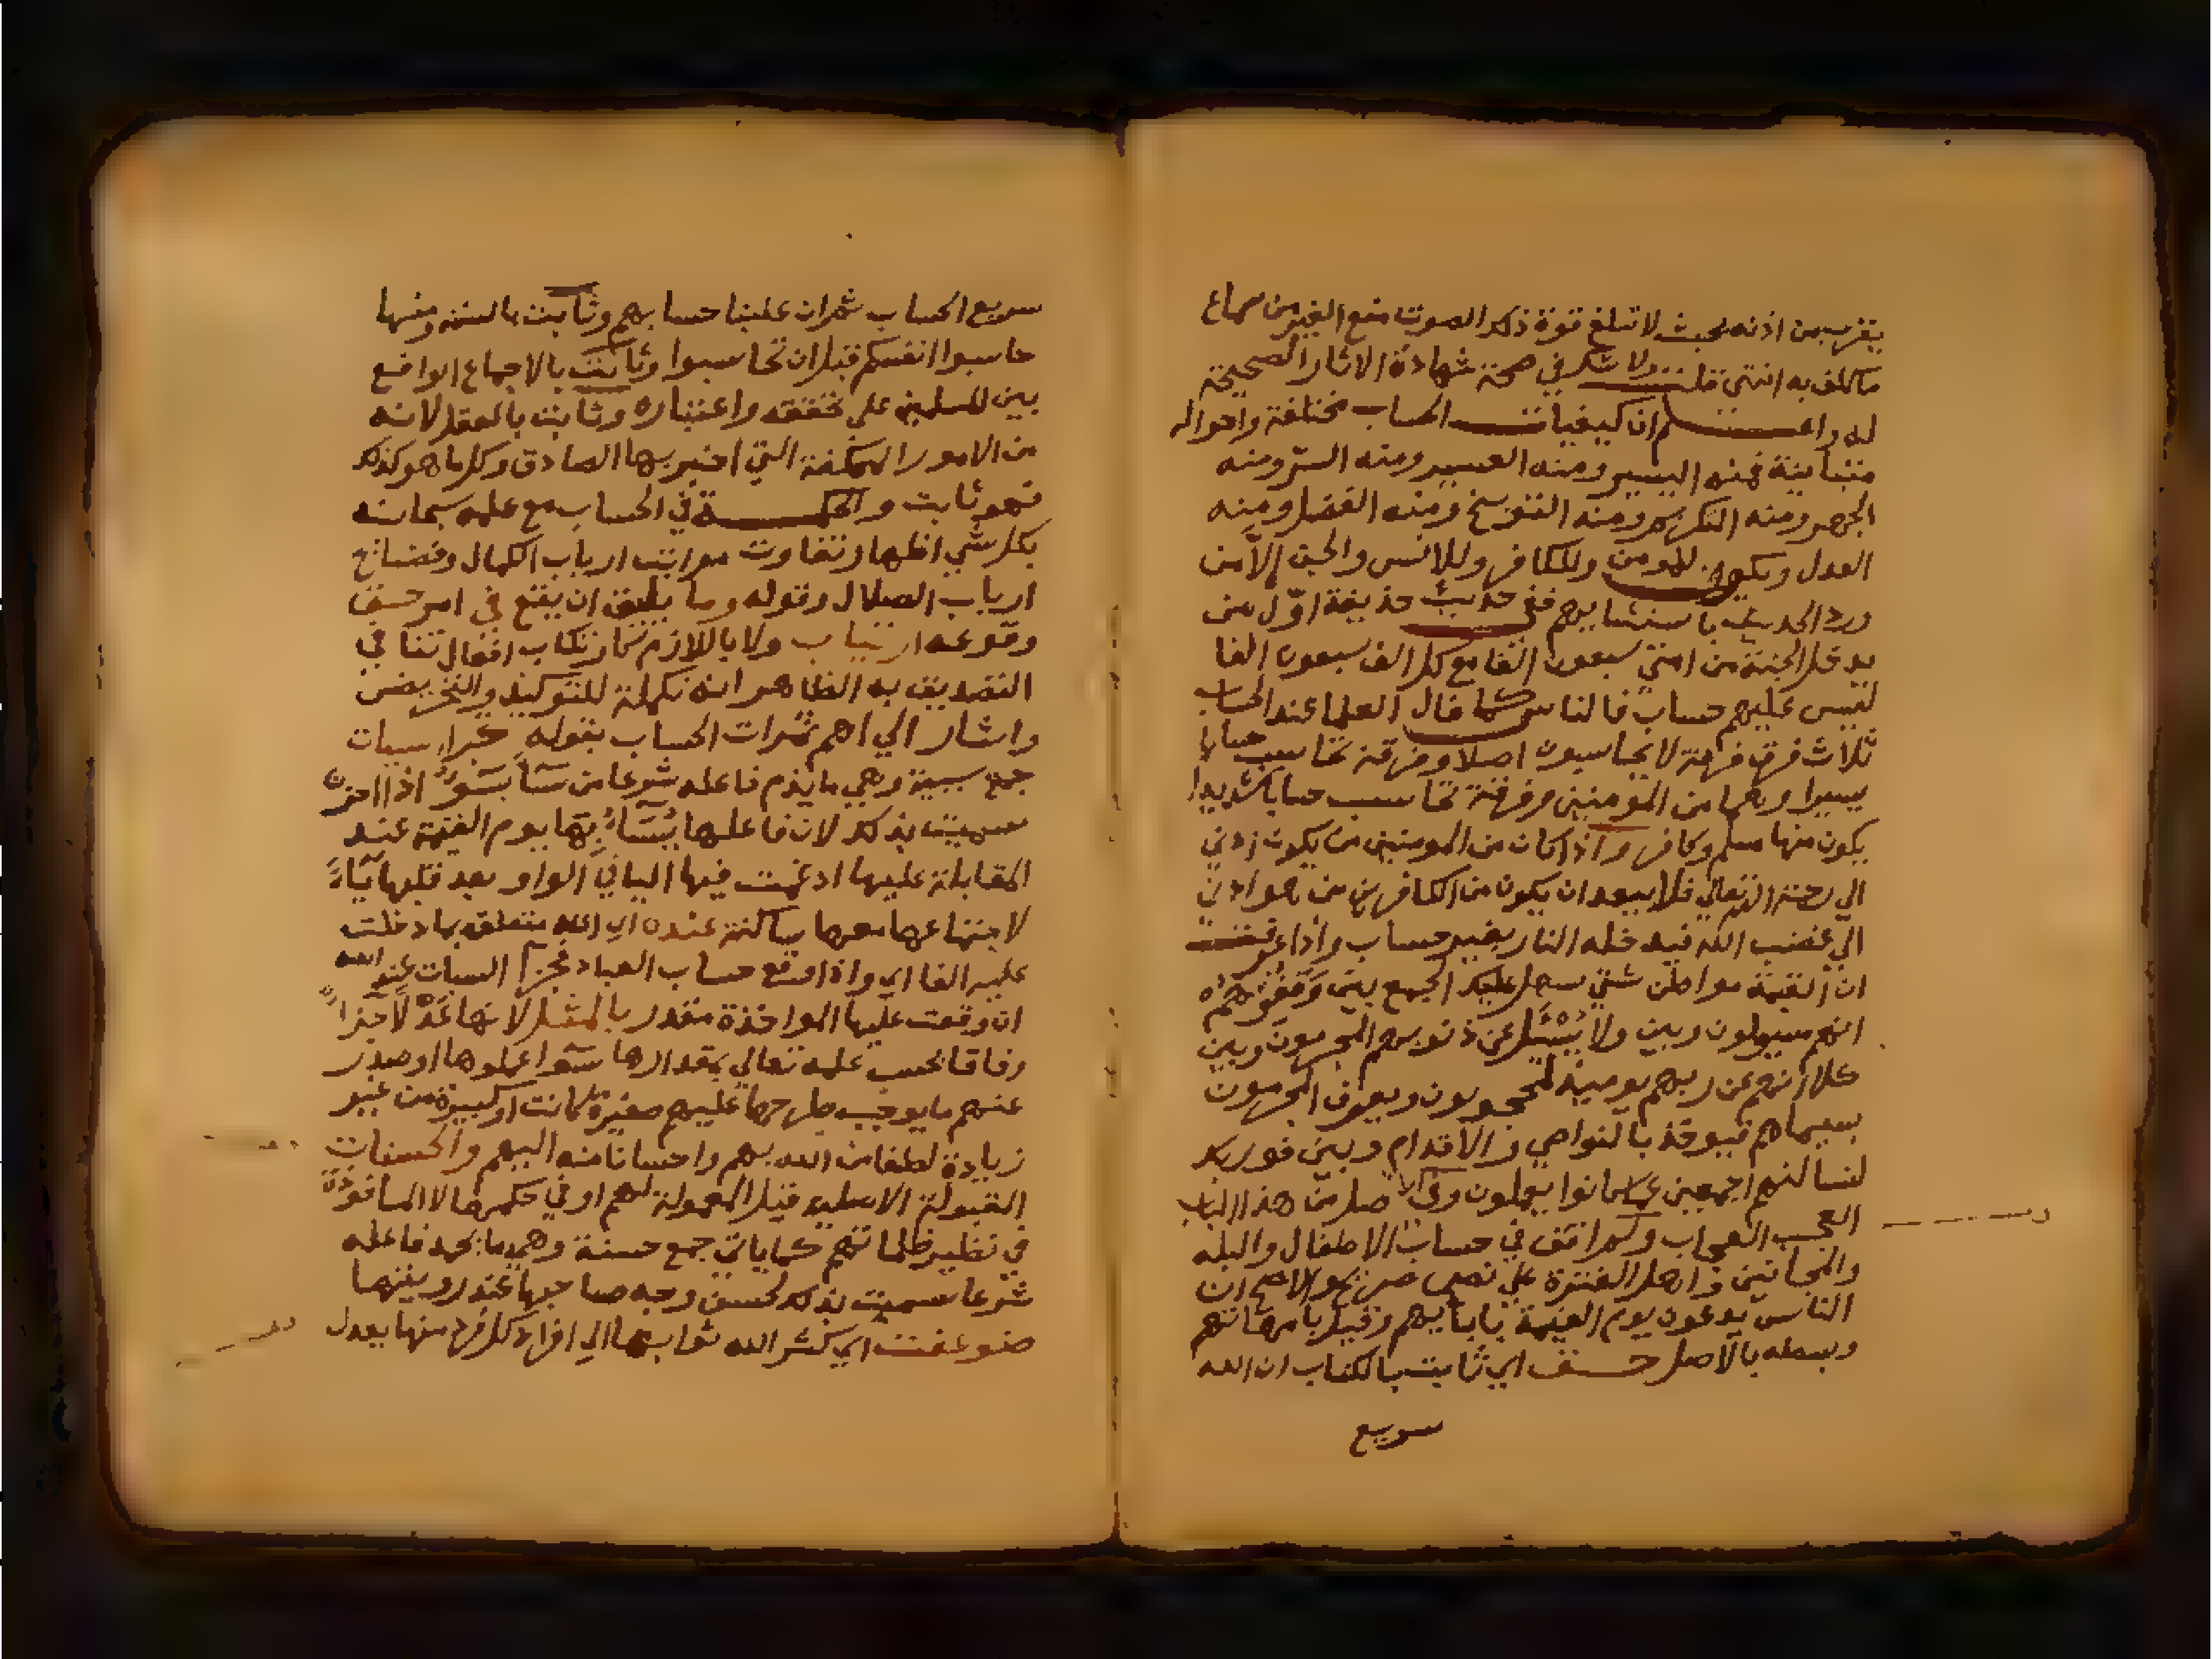 يقرب من اذنه بحيث لا تبلغ قوة ذلك الصوت منع الغير من سماع
ما كلف به انتهى قلت ولا شك في صحة شهادة الاثار الصحيحة
له واعلم ان كيفيات الحساب مختلفة واحواله
متباينة فمنه اليسير ومنه العسير ومنه السر ومنه
الجهر ومنه التكريم ومنه التوبيخ ومنه الفضل ومنه
العدل ويكون للمومن وللكافر وللانس والجن إلا من
ورد الحديث باستثنايهم ففي حديث حذيفة اول من
يدخل الجنة من امتي سبعون الفا مع كل الف سبعون الفا
ليس عليهم حساب فالناس كما قال العلما عند الحساب
ثلاث فرق فرقة لا يحاسبون اصلا وفرقة تحاسب حسابا
يسيرا وهما من المومنين وفرقة تحاسب حسابا شديدا
يكون منها مسلم وكافر واذا كان من المومنين من يكون ادني
الي رحمة الله تعالي فلا يبعد ان يكون من الكافرين من هو ادني
الي غضب الله فيدخله النار بغير حساب واذا عرفت
ان القيمة مواطن شتي سهل عليك الجمع بين وقفوهم
انهم مسيولون وبين ولا يسئل عن ذنوبهم المجرمون وبين
كلا انهم عن ربهم يوميذ لمحجوبون ويعرف المجرمون
بسيماهم فيوخذ بالنواصي والاقدام وبين فوربك
لنسالنهم اجمعين عما كانوا يعملون وفي الاصل من هذا الباب
العجب العجاب ولم اقف في حساب الاطفال والبله
والمجانين واهل الفترة علي نص صريح والاصح ان
الناس يدعون يوم القيمة بابايهم وقيل بامهاتهم
وبسطه بالاصل حق اي ثابت بالكتاب ان الله
سريع
سريع الحساب ثم ان علينا حسابهم وثابت بالسنه ومنها
حاسبوا انفسكم قبل ان تحاسبوا وثابت بالاجماع الواقع
بين المسلمين علي تحققه واعتباره وثابت بالعقل لانه
من الامور الممكنة التي اخبر بها الصادق وكل ما هو كذلك
فهو ثابت والحكمة في الحساب مع علمه سبحانه
بكل شي اظهار تفاوت مراتب ارباب الكمال وفضايح
ارباب الضلال وقوله وما يليق ان يقع في امر حق
وقوعه ارتياب ولا باللازم كارتكاب افعال تنافي
التصديق به الظاهر انه تكملة للتوكيد والتحريض
واشار الي اهم ثمرات الحساب بقوله فالسيات
جمع سيية وهي ما يذم فاعله شرعا من ساء يسوء اذا احزن
سميت بذلك لان فاعلها يساء بها يوم القيمة عند
المقابلة عليها ادغمت فيها اليا في الواو بعد قلبها ياء
لاجتماعها معها ساكنة عنده اي الله متعلق بما دخلت
عليه الفا اي واذا وقع حساب العباد فجزآ السيات عند الله
ان وقعت عليها المواخذة مقدر بالمثل لانها عدلا جزاء
وفاقا بحسب علمه تعالي بمقدارها سوآ عملوها او صدر
عنهم ما يوجب طرحها عليهم صغيرة كانت او كبيرة من غير
زيادة لطفا من الله بهم واحسانا منه اليهم والحسنات
المقبولة الاصلية قيل المعمولة لهم او في حكمها لا الماخوذة
في نظير ظلماتهم كما ياتي جمع حسنة وهي ما يحمد فاعله
شرعا سميت بذلك لحسن وجه صاحبها عند رويتها
ضوعفت اي كثر الله ثوابها الي افراد كل فرد منها يعدل